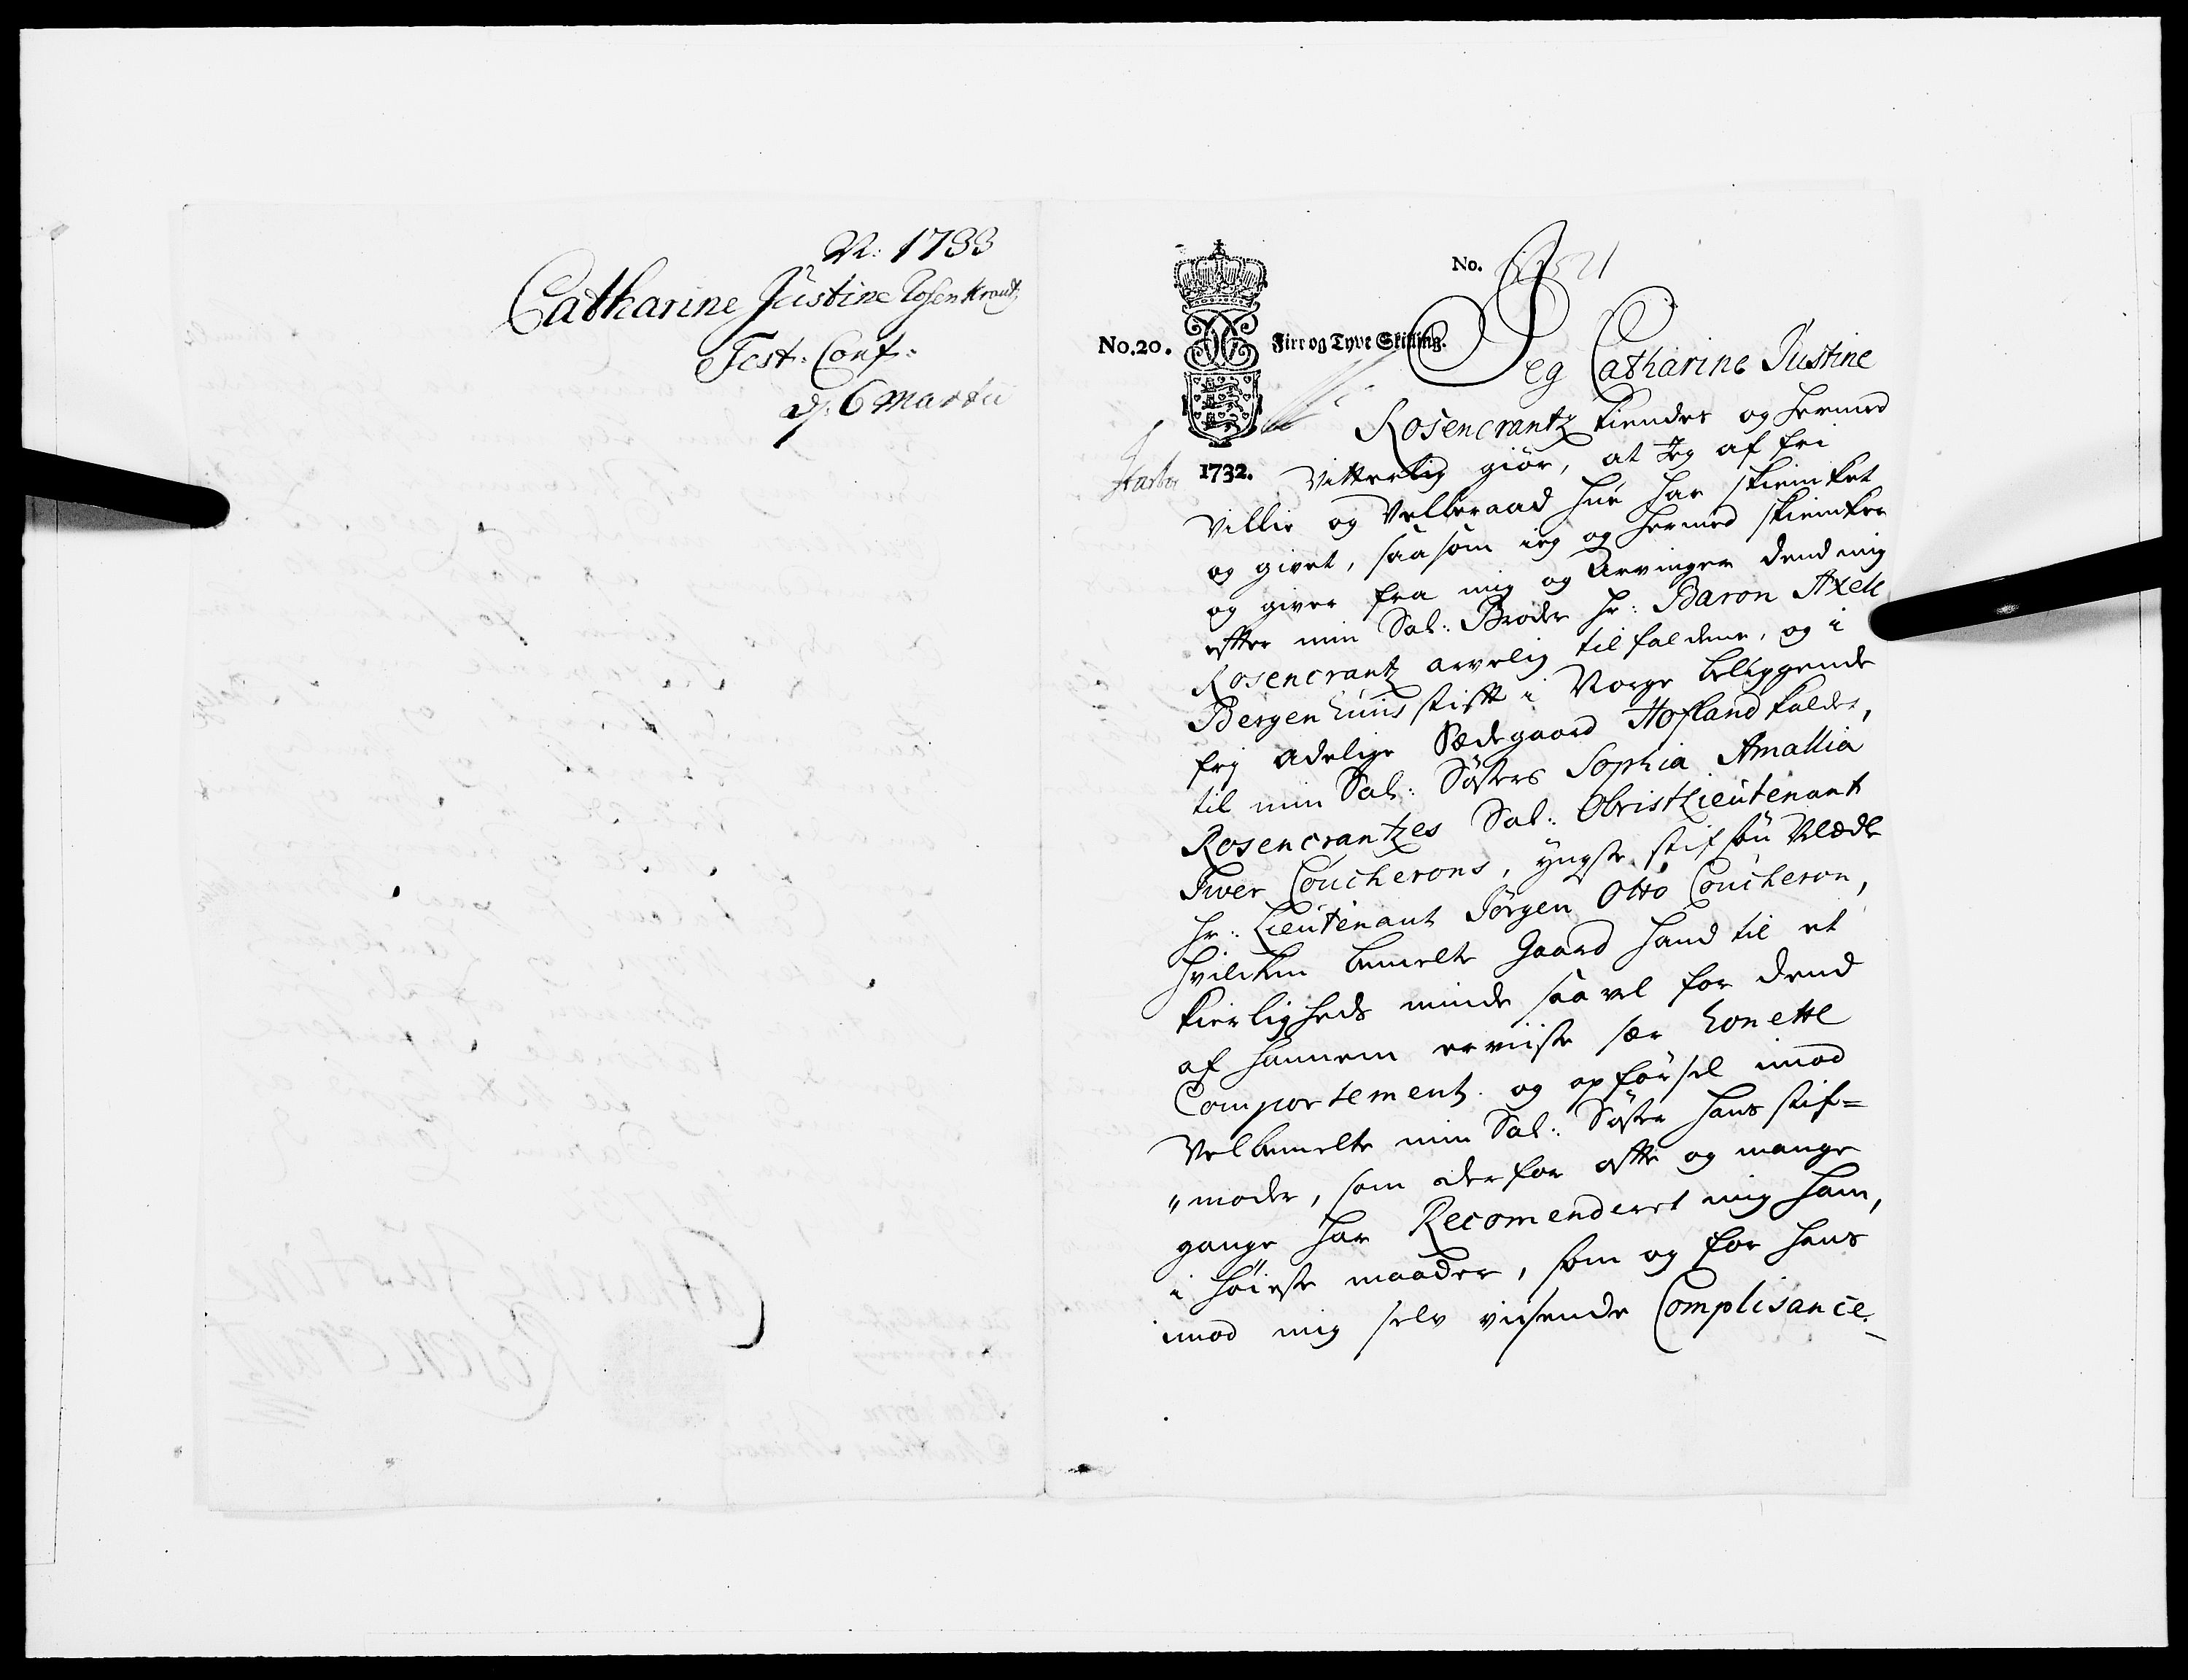 N: 1733
Catharine Justine Rosenkrantz
Test: Conf:
d. 6 Martii
No.
No.20. Fire og Tyve Skilling.
Jeg Catharine Justine
Rosencrantz kiendes og hermed
1732. Vitterlig giör, at Jeg af fri
Villie og Velberaad hue har skiencket
og givet, saasom ieg og hermed skiencker
og giver fra mig og Arvinger dend mig
efter min Sal: Broder Hr: Baron Axell
Rosencrantz arvelig tilfaldene, og i
Bergenhuus stift i Norge beliggende
frj adelige Sædegaard Hofland kaldet,
til min Sal: Søsters Sophia Amallia
Rosencrantzes Sal: ObristLieutenant
Iwer Coucherons, yngste stifsøn Velædle
Hr: Lieutenant Jörgen Otto Coucheron,
hvilcken bemelte Gaard hand til et
kierligheds minde saavel for dend
af hannem erviiste sær honette
Comportement og opförsel imod
Velbemelte min Sal: Søster hans stif=
"moder, som derfor ofte og mange
gange har Recomenderet mig ham,
i höieste maader, som og for hans
imod mig selv viisende Complisance.